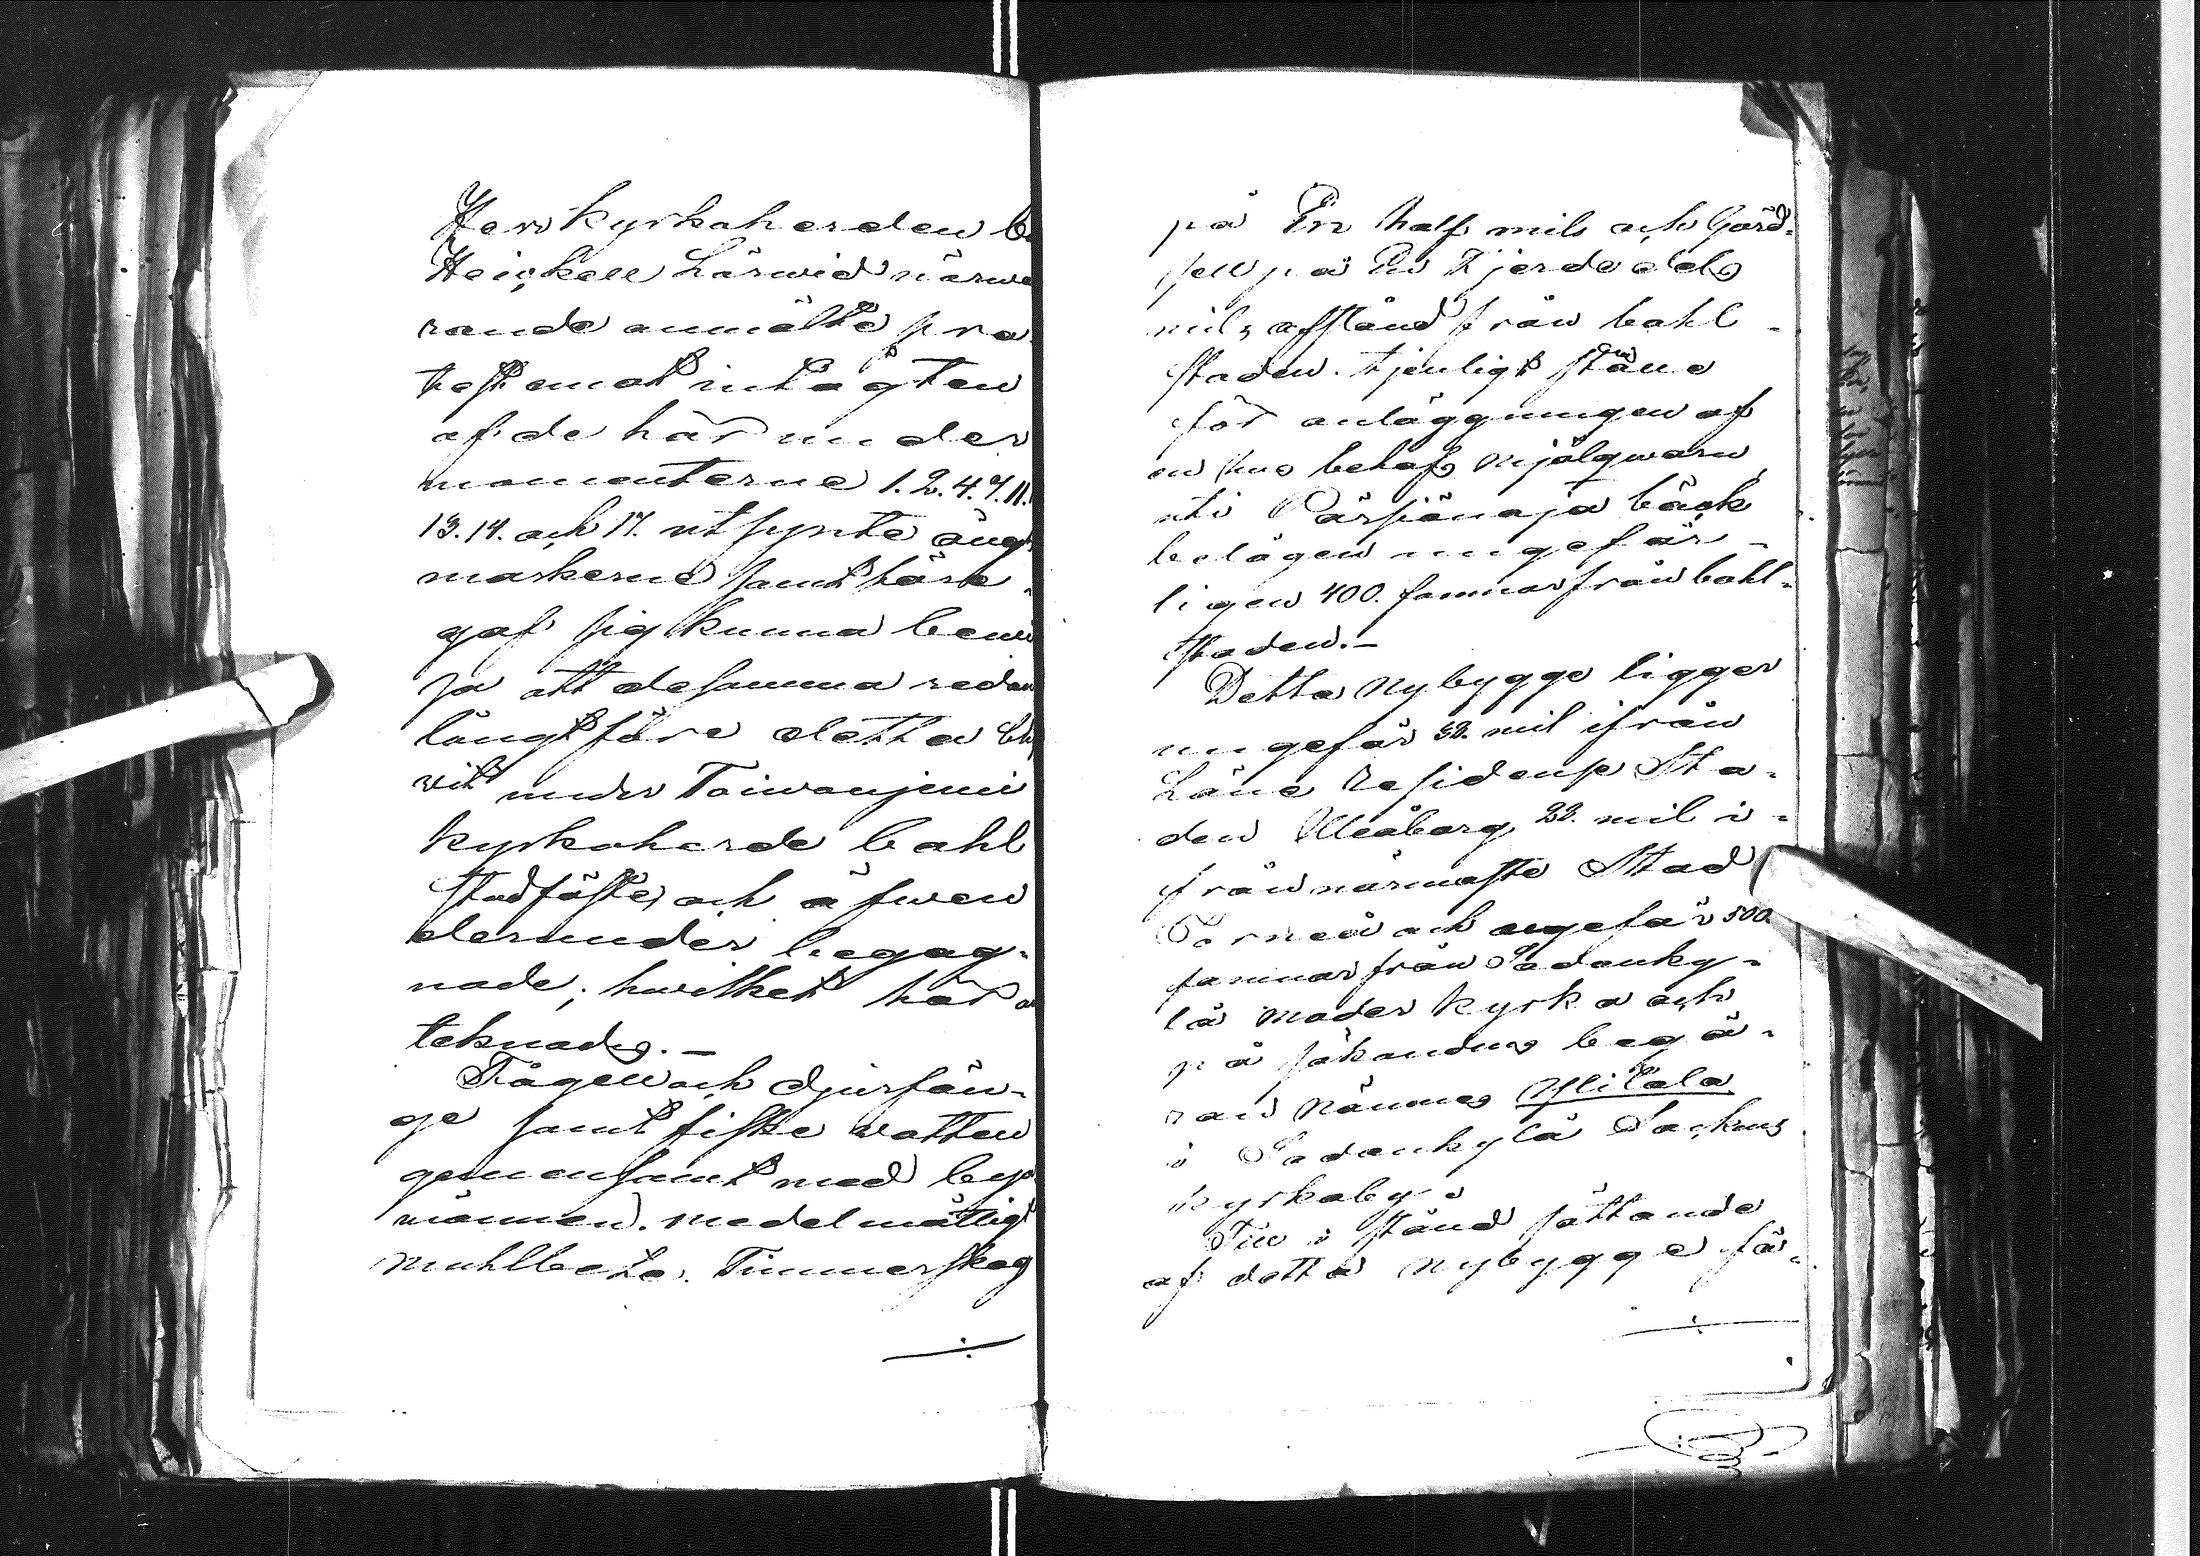 Herr Kyrkoherden
Heickell härwid närwa
rande anmälte pro
test emot intagten
af de här under
momenterne 1. 2. 4. 7. 11.
13. 14. och 17. utsynte äng
markerne samt före
gaf sig kunna bewi
sa att desamma redan
långt före detta bli
vit under Toiwoniemi
Kyrkoherde bohl
stadfäste, och äfwen
derunder begag-
nade; hwilket här a
teknades. —
Fågell och djurfån-
ge samt fiske watten
gemensamt med bys
männen. medelmåttigt
Muhlbete. Timmerskog
på En half mils och Gärd-
sell på En Fjerdedels
mils afstånd från bohl-
staden. tjenligt ställe
för anläggningen af
en hus behofs mjölqwarn
uti bäck
belägen ungefär-
ligen 400. famnar från bohl-
staden. —
Detta Nybygge ligger
ungefär 38. mil ifrån
Läns Residens Sta-
den Uleåborg, 22. mil i-
från närmaste Stad
Torneå och ungefär 500.
famnar från Sodanky-
lä moder kyrka och
på sökandens begä-
ran nämnes Ylitalo
i Sodankylä Sockens
kyrkoby.
Till i stånd sättande
af detta nybygge får